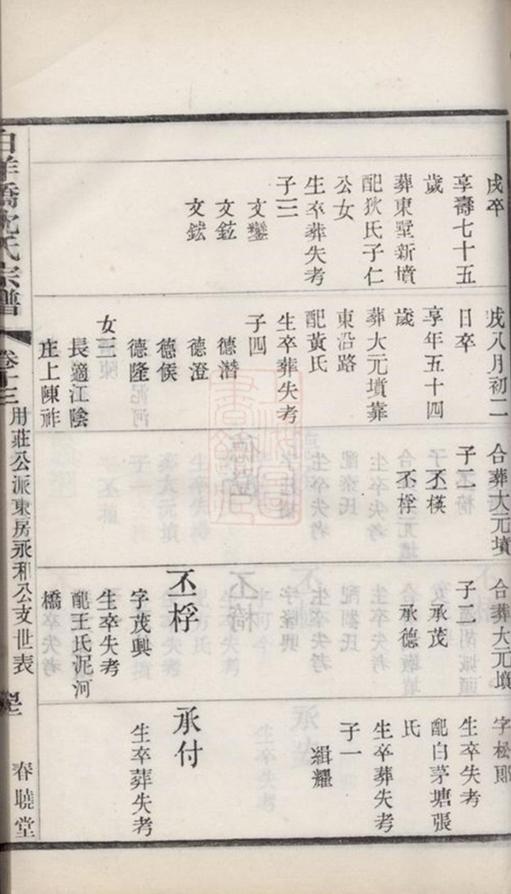 戌卒
享壽七十五
歲
葬東墅新墳
配狄氏子仁
公女
生卒葬失考
子三
文鑾
文鈜
戌八月初二
日卒
享年五十四
歲
葬大元墳靠
東沿路
配黃氏
生卒葬失考
子四
德潛
德澄
德俟
德隆
女三
長適江陰
庄上陳祚
合葬大元墳
子二
丕模
丕桴
合葬大元墳
子二
承茂
承德
丕桴
字茂興
生卒失考
配王氏泥河
橋
字松郎
生卒失考
配白茅塘張
氏
生卒葬失考
子一
緝耀
承付
生卒葬失考
白洋橋沈氏宗譜
卷十三
用莊公派東房永和公支世表
春曉堂